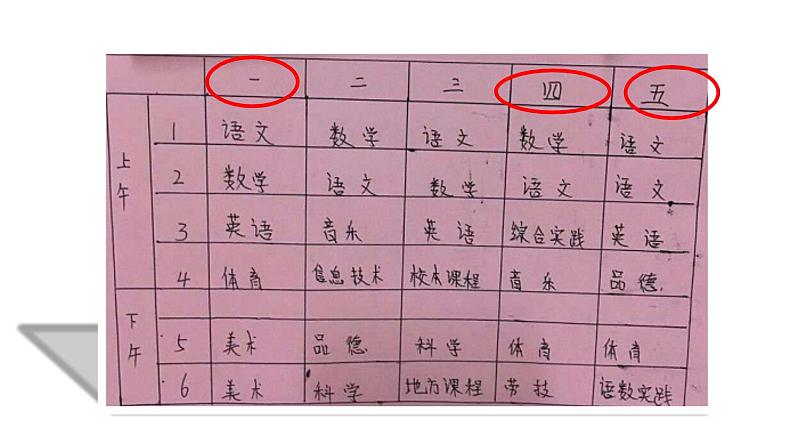 一 二 三 四 五
上午
1 语文 数学 语文 数学 语文
2 数学 语文 数学 语文 语文
3 英语 音乐 英语 综合实践 英语
4 体育 信息技术 校本课程 音乐 品德.
下午
5 美术 品德 科学 体育 体育
6 美术 科学 地方课程 劳技 语数实践